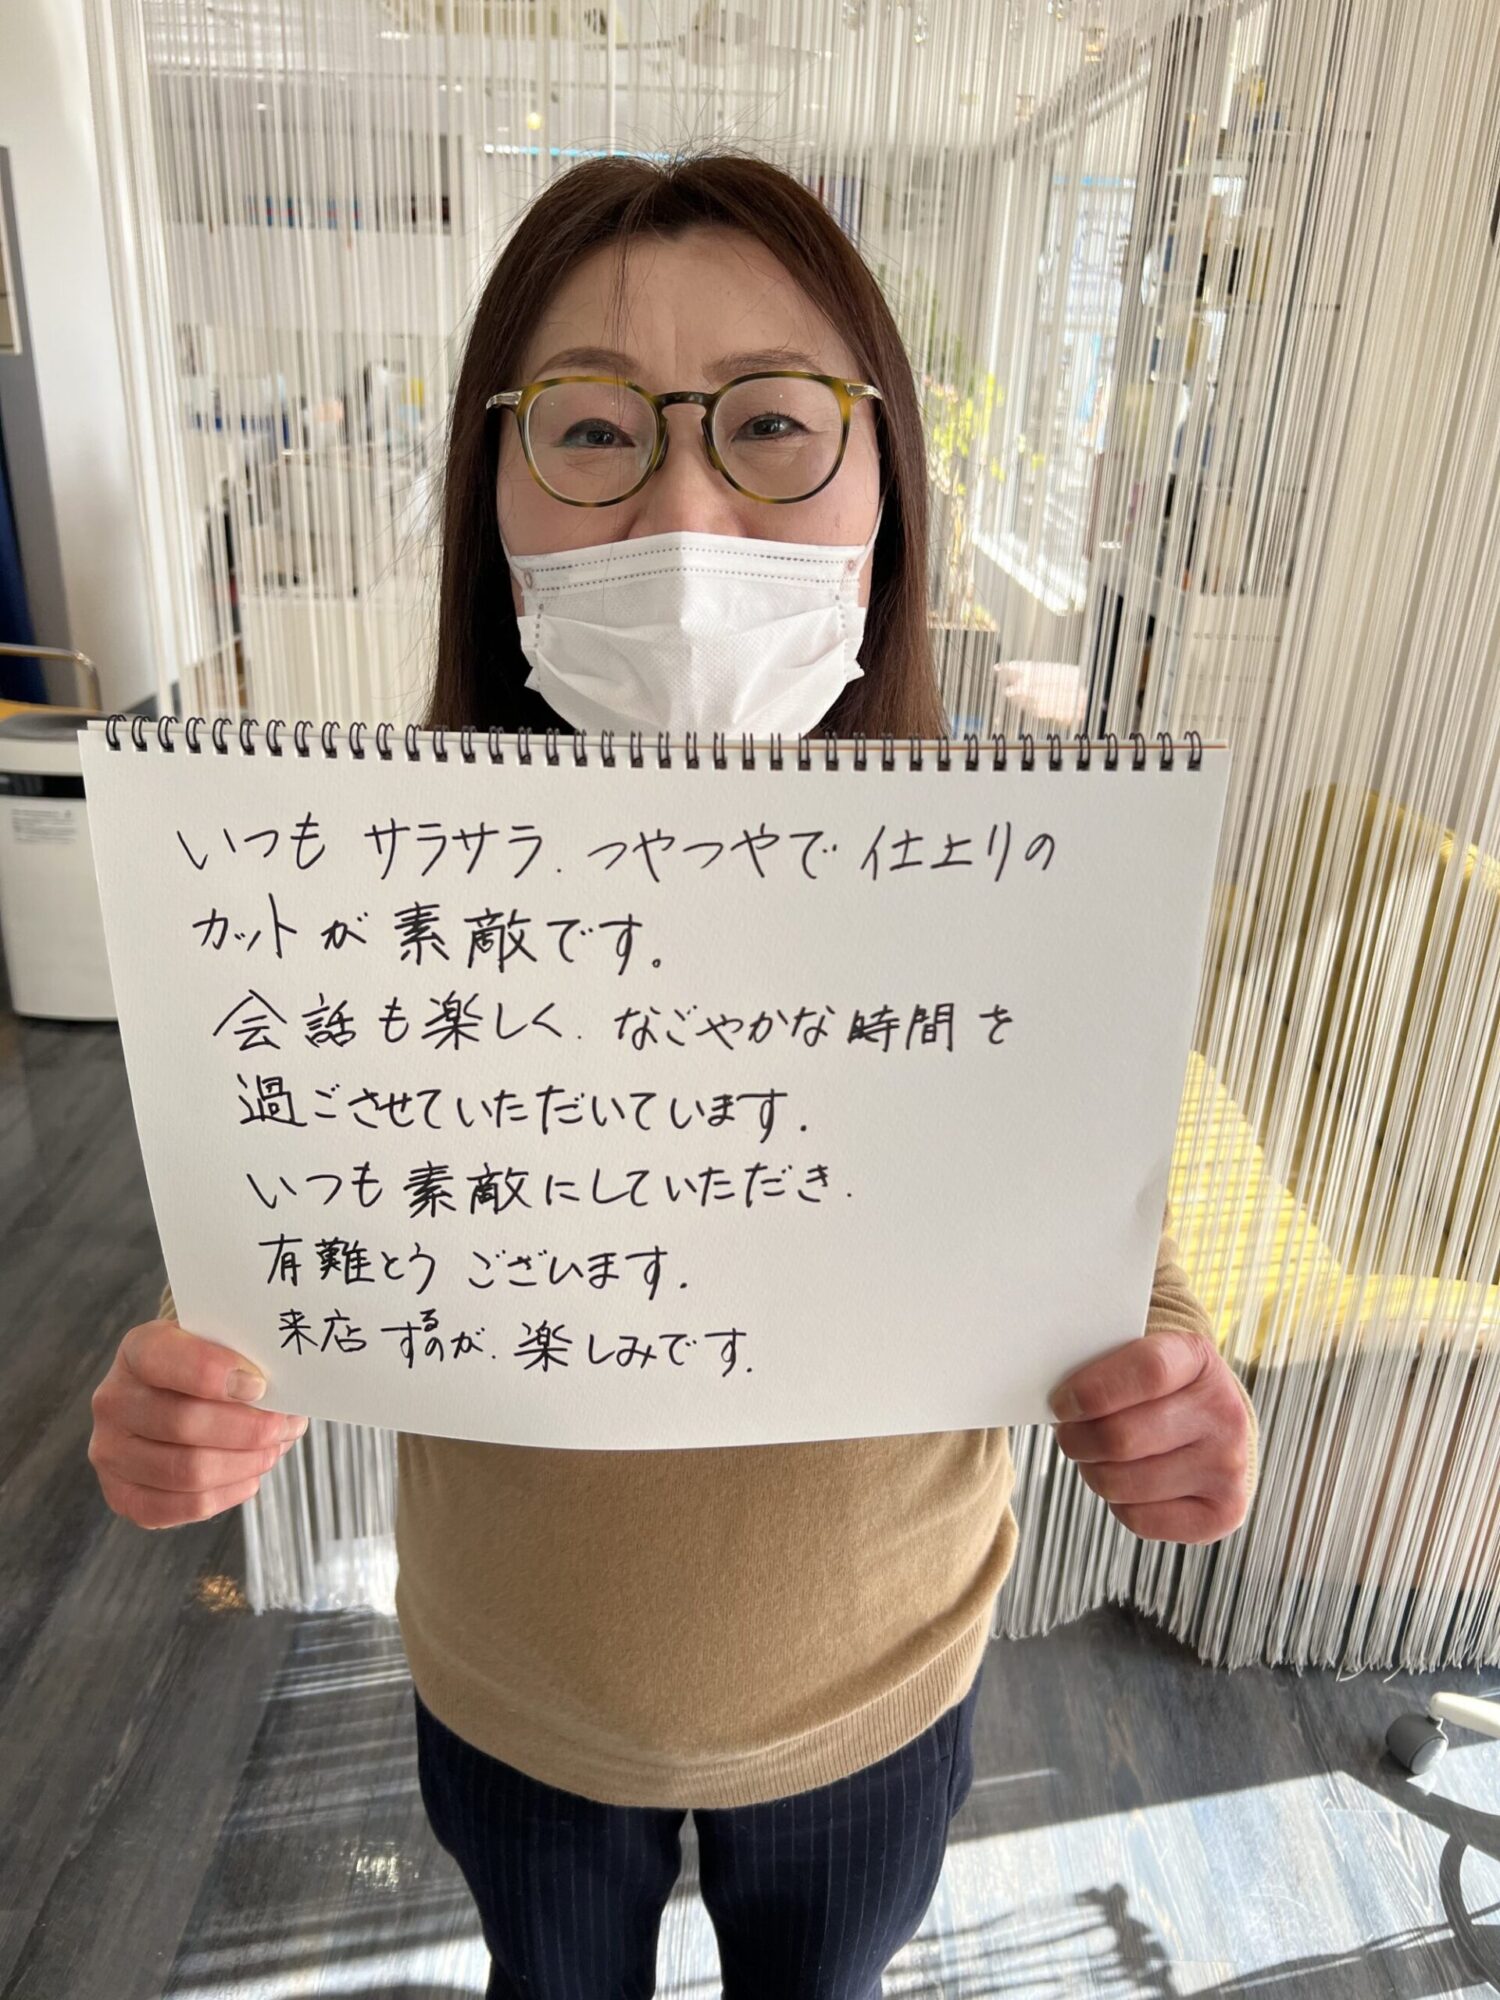 いつも サラサラ、つやつやで 仕上りの
カットが 素敵です。
会話も楽しく、なごやかな時間を
過ごさせていただいています。
いつも素敵にしていただき、
有難とうございます。
来店するのが、楽しみです。